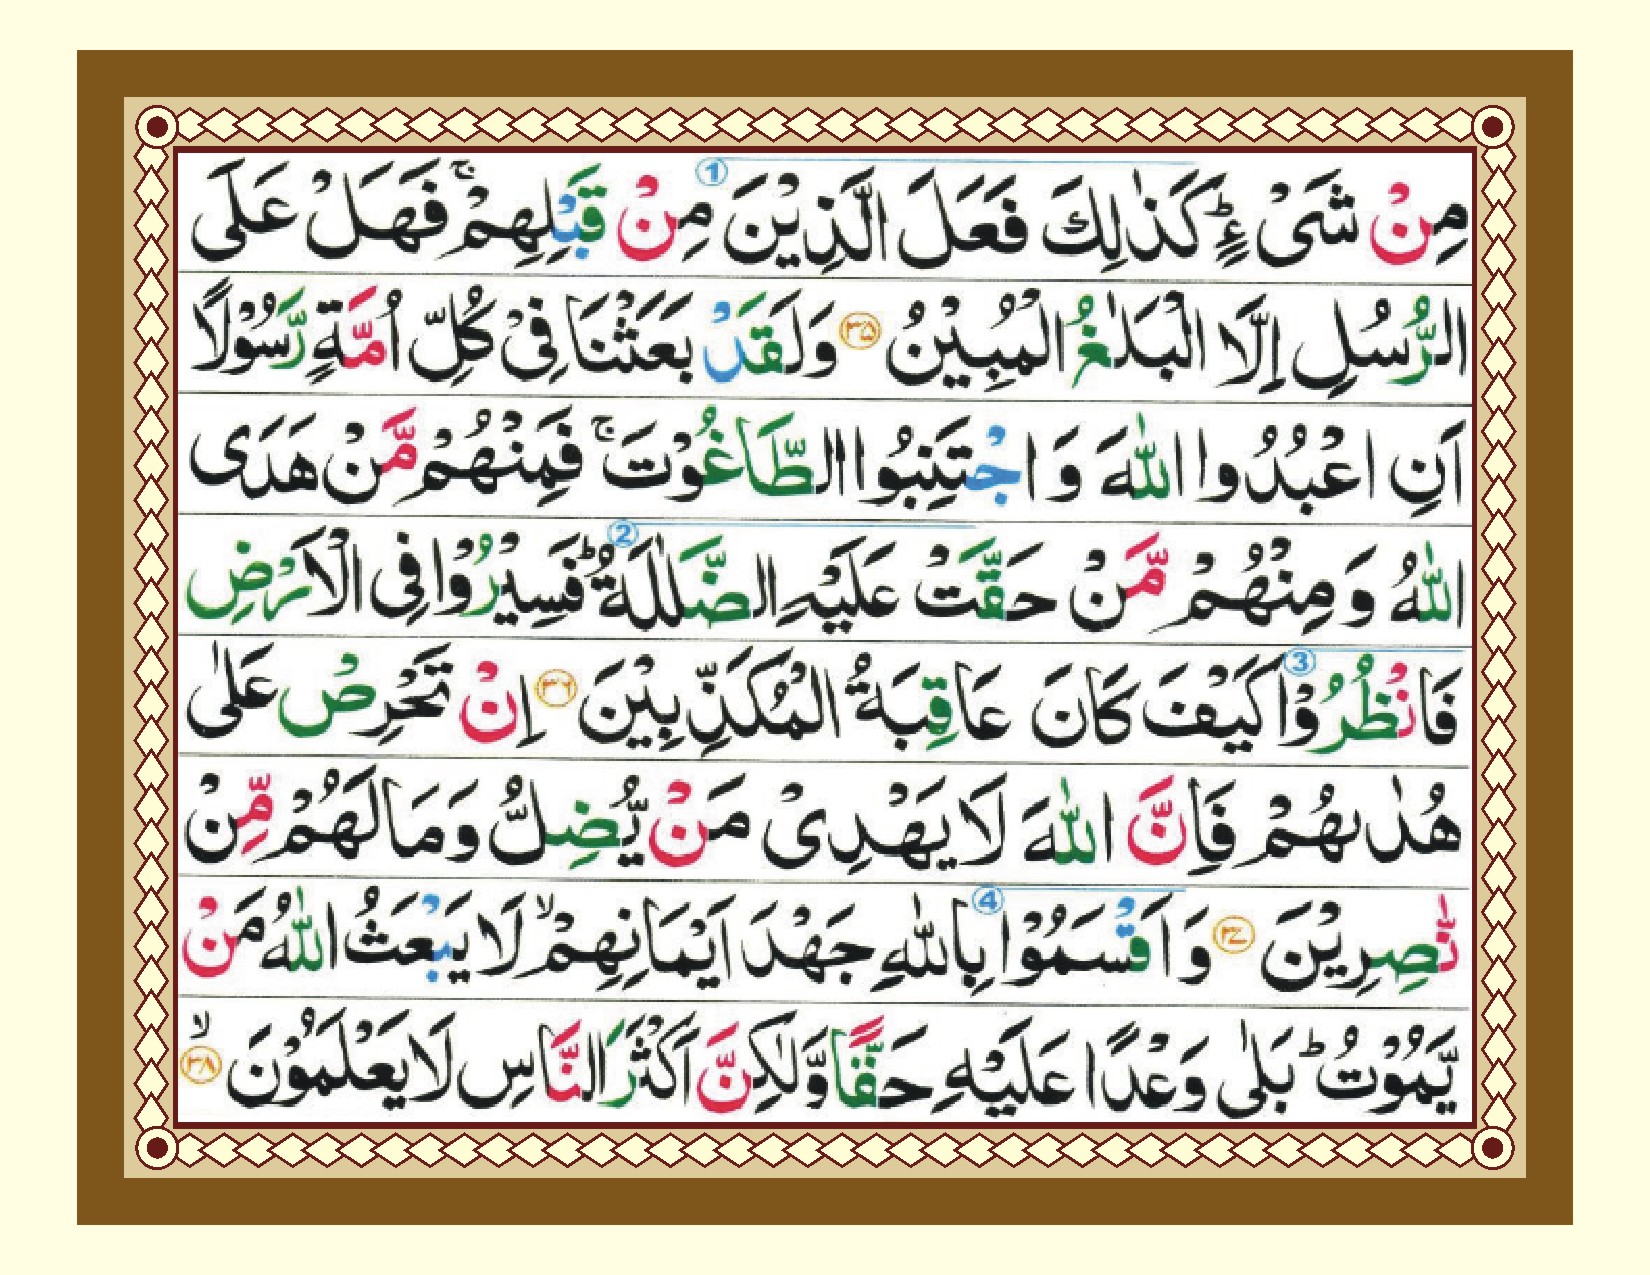 مِنْ شَیْءٍ ؕ كَذٰلِكَ فَعَلَ الَّذِیْنَ مِنْ ① قَبْلِهِمْ ۚ فَهَلْ عَلَی
الرُّسُلِ اِلَّا الْبَلٰغُ الْمُبِیْنُ ۳۵ وَلَقَدْ بَعَثْنَا فِیْ كُلِّ اُمَّةٍ رَّسُوْلًا
اَنِ اعْبُدُوا اللّٰهَ وَ اجْتَنِبُوا الطَّاغُوْتَ ۚ فَمِنْهُمْ مَّنْ هَدَی
اللّٰهُ وَمِنْهُمْ مَّنْ حَقَّتْ عَلَیْهِ الضَّلٰلَةُ ② ؕ فَسِیْرُوْا فِی الْاَرْضِ
فَانْظُرُوْا ③ كَیْفَ كَانَ عَاقِبَةُ الْمُكَذِّبِیْنَ ۳۶ اِنْ تَحْرِصْ عَلٰی
هُدٰىهُمْ فَاِنَّ اللّٰهَ لَا یَهْدِیْ مَنْ یُّضِلُّ وَمَا لَهُمْ مِّنْ
نّٰصِرِیْنَ ۳۷ وَ اَقْسَمُوْا ④ بِاللّٰهِ جَهْدَ اَیْمَانِهِمْ ۙ لَا یَبْعَثُ اللّٰهُ مَنْ
یَّمُوْتُ ؕ بَلٰی وَعْدًا عَلَیْهِ حَقًّا وَّلٰكِنَّ اَكْثَرَ النَّاسِ لَا یَعْلَمُوْنَ ۙ ۳۸